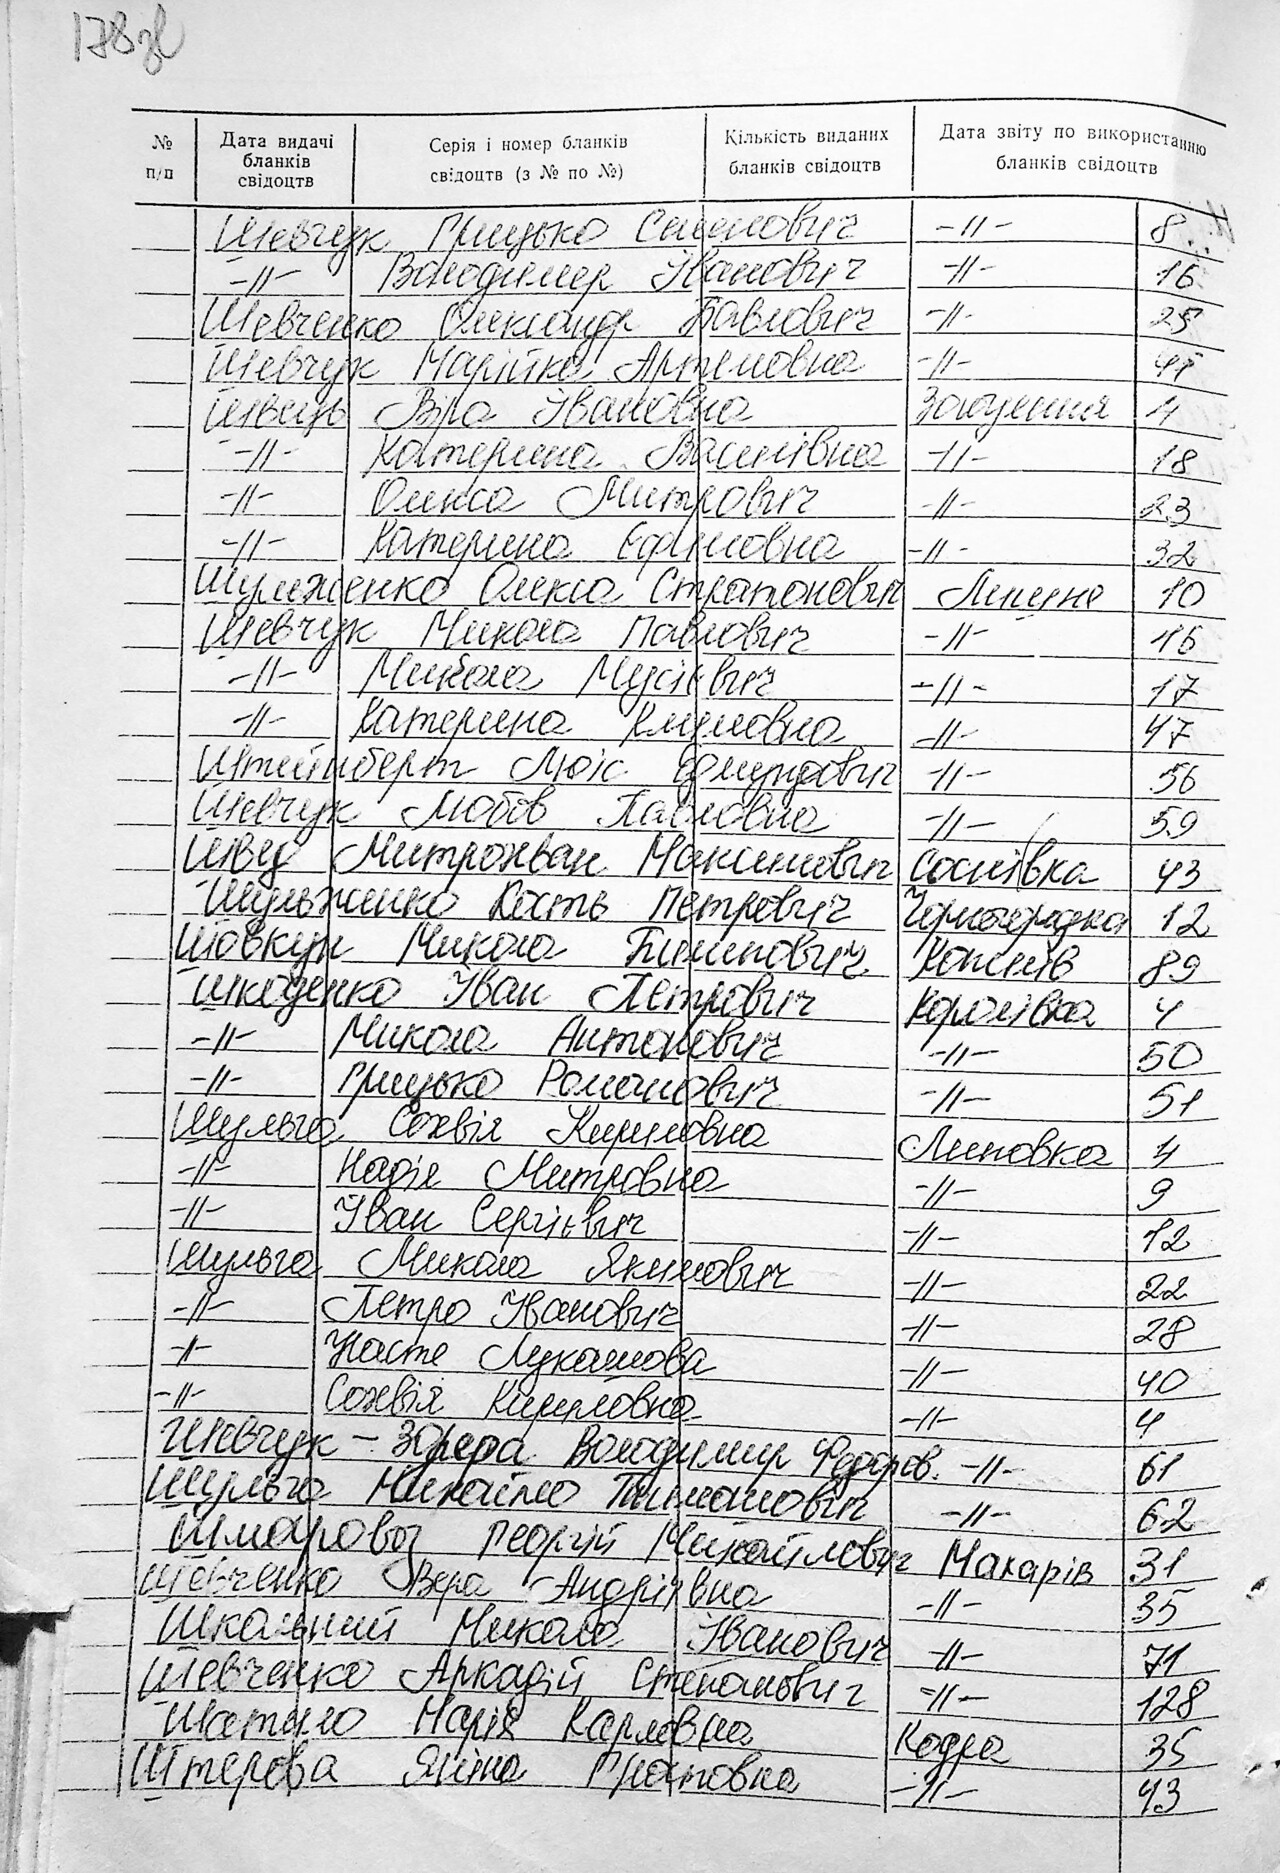 178
№ п/п | Дата видачі бланків свідоцтв | Серія і номер бланків свідоцтв (з № по №) | Кількість виданих бланків свідоцтв | Дата звіту по використанню бланків свідоцтв
Шевчук Грицько Семенович -//- 8
-//- Володимер Іванович -//- 16
Шевченко Олександр Павлович -//- 25
Шевчук Марійка Артемовна -//-
Швець Віра Івановна 4
-//- Катерина Василівна -//- 18
-//- Олекса Митрович -//- 23
-//- Катерина Єфимовна -//- 32
Шулженко Олекса Стратонович 10
Шевчук Микола Павлович -//- 16
-//- Микола Мусієвич -//- 17
-//- Катерина Климовна -//- 47
Штейнберг Люіс Едмундович -//- 56
Шевчук Любов Павловна -//- 59
Швед Митрохван Максимович Соснівка 43
Шульженко Кость Петрович Чорногородка 12
Шовкун Микола Пилипович Копилів 89
Шкоденко Іван Петрович Королівка 4
-//- Микола Антонович -//- 50
-//- Грицько Романович -//- 51
Шульга Сохвія Кириловна Липовка 4
-//- Надія Митровна -//- 9
-//- Іван Сергієвич -//- 12
Шульга Микола Якимович -//- 22
-//- Петро Іванович -//- 28
-//- Настя Лукашова -//- 40
-//- Сохвія Кириловна -//- 4
Шевчук - Володимир Федоров. -//- 61
Шульга Михайло Тимошович -//- 62
Шмаровоз Георгій Михайлович Макарів 31
Шевченко Вера Андріївна -//- 35
Шкальний Микола Іванович -//- 71
Шевченко Аркадій Степанович -//- 128
Шатило Марія Карловна Кодра 35
Штерова Яніна Гнатовна -//- 43